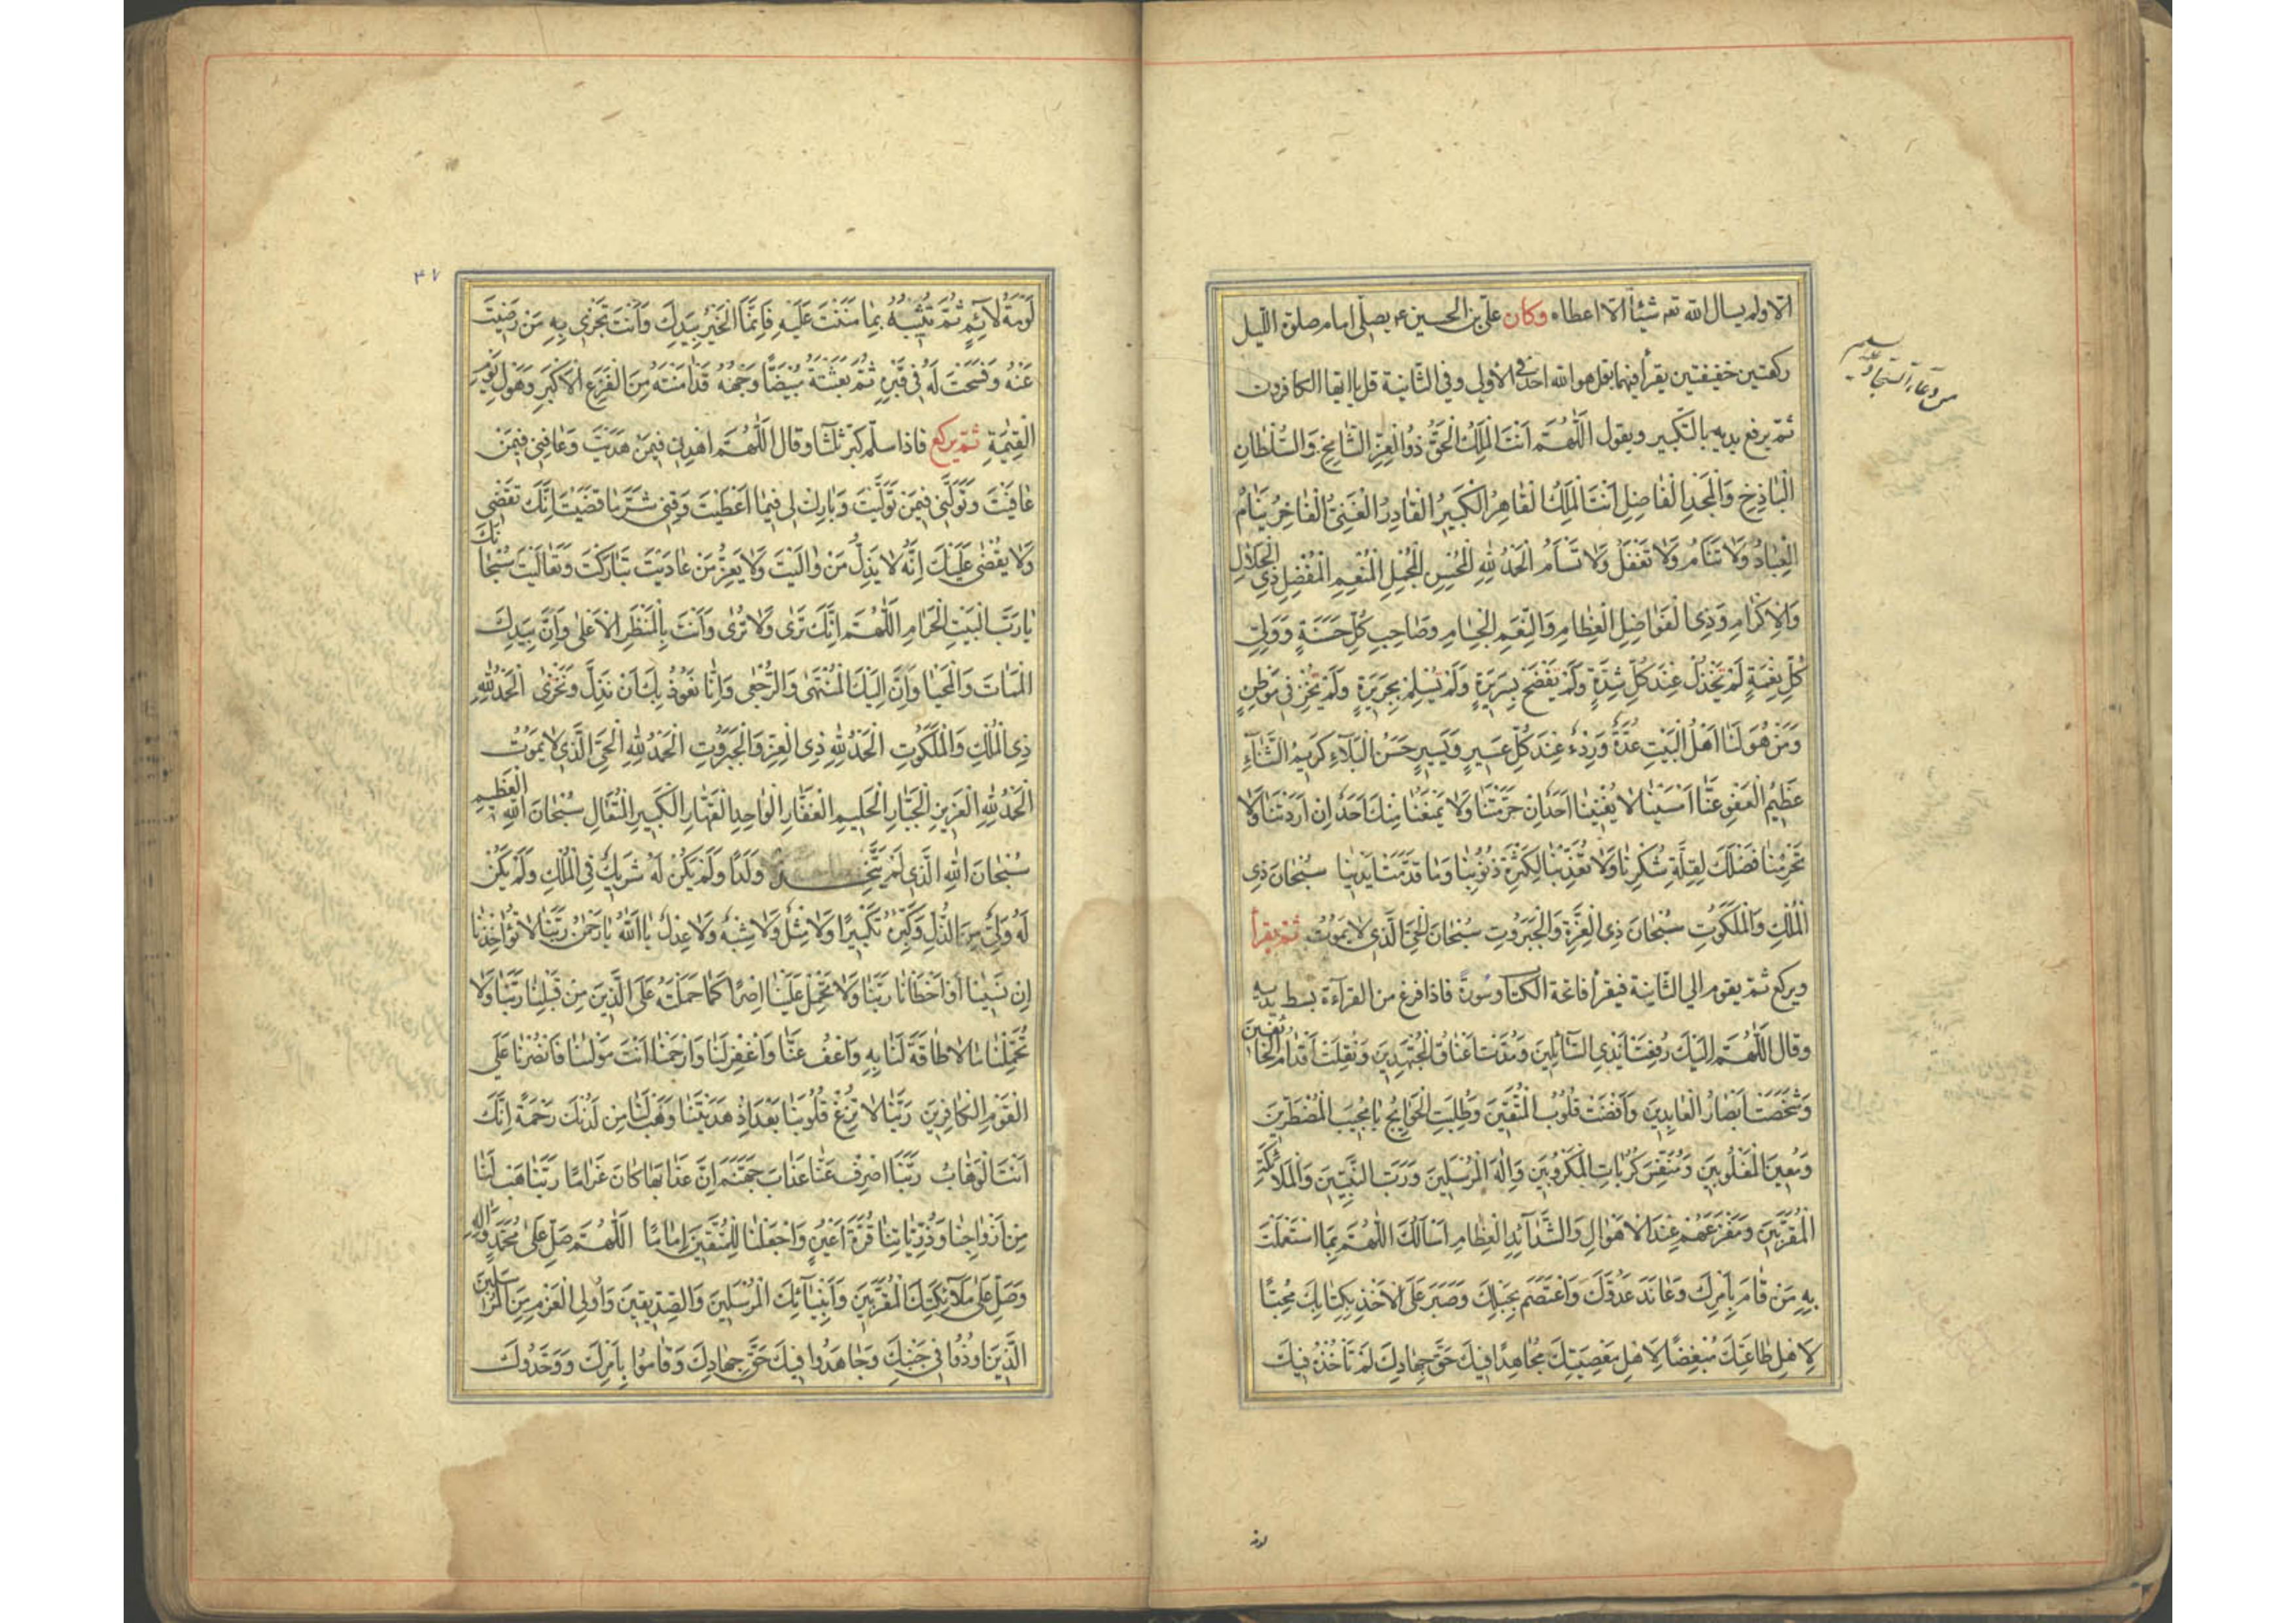 الا ولم يسال الله تعه شيئاً الا اعطاه وكان علي بن الحسين ع يصلي امام صلوة الليل
ركعتين خفيفتين يقرأ فيهما بقل هو الله احد في الأولى وفي الثانية قل يا ايها الكافرون
ثم يرفع يديه بالتكبير ويقول اَللّٰهُمَّ اَنْتَ الْمَلِكُ الْحَقُّ ذُو الْعِزِّ الشَّامِخِ وَالسُّلْطَانِ
الْبَاذِخِ وَالْمَجْدِ الْفَاضِلِ اَنْتَ الْمَلِكُ الْقَاهِرُ الْكَبِيرُ الْقَادِرُ الْغَنِيُّ الْفَاخِرُ يَنَامُ
الْعِبَادُ وَلَا تَنَامُ وَلَا تَغْفُلُ وَلَا تَسْأَمُ الْحَمْدُ لِلّٰهِ الْمُحْسِنِ الْمُجْمِلِ الْمُنْعِمِ الْمُفْضِلِ ذِي الْجَلَالِ
وَالْاِكْرَامِ وَذِي الْفَوَاضِلِ الْعِظَامِ وَالنِّعَمِ الْجِسَامِ وَصَاحِبِ كُلِّ حَسَنَةٍ وَوَلِيِّ
كُلِّ نِعْمَةٍ لَمْ يَخْذُلْ عِنْدَ كُلِّ شِدَّةٍ وَلَمْ يَفْضَحْ بِسَرِيرَةٍ وَلَمْ يُسْلِمْ بِجَرِيرَةٍ وَلَمْ يُخْزِ فِي مَوْطِنٍ
وَمَنْ هُوَ لَنَا اَهْلَ الْبَيْتِ عُدَّةٌ وَرِدْءٌ عِنْدَ كُلِّ عَسِيرٍ وَيَسِيرٍ حَسَنُ الْبَلَاءِ كَرِيمُ الثَّنَاءِ
عَظِيمُ الْعَفْوِ عَنَّا اَمْسَيْنَا لَا يُغْنِينَا اَحَدٌ اِنْ حَرَمْتَنَا وَلَا يَمْنَعُنَا مِنْكَ اَحَدٌ اِنْ اَرَدْتَنَا وَلَا
تَحْرِمْنَا فَضْلَكَ لِقِلَّةِ شُكْرِنَا وَلَا تُعَذِّبْنَا لِكَثْرَةِ ذُنُوبِنَا وَمَا قَدَّمَتْ اَيْدِينَا سُبْحَانَ ذِي
الْمُلْكِ وَالْمَلَكُوتِ سُبْحَانَ ذِي الْعِزَّةِ وَالْجَبَرُوتِ سُبْحَانَ الْحَيِّ الَّذِي لَا يَمُوتُ ثم يقرأ
ويركع ثم يقوم الى الثانية فيقرأ فاتحة الكتاب وسورة فاذا فرغ من القراءة بسط يديه
وقال اَللّٰهُمَّ اِلَيْكَ رُفِعَتْ اَيْدِي السَّائِلِينَ وَمُدَّتْ اَعْنَاقُ الْمُجْتَهِدِينَ وَنُقِلَتْ اَقْدَامُ الْخَائِفِينَ
وَشَخَصَتْ اَبْصَارُ الْعَابِدِينَ وَاَفْضَتْ قُلُوبُ الْمُتَّقِينَ وَطُلِبَتِ الْحَوَائِجُ يَا مُجِيبَ الْمُضْطَرِّينَ
وَمُعِينَ الْمَغْلُوبِينَ وَمُنَفِّسَ كُرُبَاتِ الْمَكْرُوبِينَ وَاِلٰهَ الْمُرْسَلِينَ وَرَبَّ النَّبِيِّينَ وَالْمَلَائِكَةِ
الْمُقَرَّبِينَ وَمَفْزَعَهُمْ عِنْدَ الْاَهْوَالِ وَالشَّدَائِدِ الْعِظَامِ اَسْأَلُكَ اَللّٰهُمَّ بِمَا اسْتَعْمَلْتَ
بِهِ مَنْ قَامَ بِاَمْرِكَ وَعَانَدَ عَدُوَّكَ وَاعْتَصَمَ بِحَبْلِكَ وَصَبَرَ عَلَى الْاَخْذِ بِكِتَابِكَ مُحِبًّا
لِاَهْلِ طَاعَتِكَ مُبْغِضًا لِاَهْلِ مَعْصِيَتِكَ مُجَاهِدًا فِيكَ حَقَّ جِهَادِكَ لَمْ تَأْخُذْهُ فِيكَ
من دعاء السجاد عليه السلام
لومة
٤٧
لَوْمَةُ لَائِمٍ ثُمَّ تُثِيبُهُ بِمَا مَنَنْتَ عَلَيْهِ فَاِنَّمَا الْخَيْرُ بِيَدِكَ وَاَنْتَ تَجْزِي بِهِ مَنْ رَضِيتَ
عَنْهُ وَفَسَحْتَ لَهُ فِي قَبْرِهِ ثُمَّ بَعَثْتَهُ مُبْيَضًّا وَجْهُهُ قَدْ اٰمَنْتَهُ مِنَ الْفَزَعِ الْاَكْبَرِ وَهَوْلِ يَوْمِ
الْقِيٰمَةِ ثم يركع فاذا سلم كبر ثلثا وقال اَللّٰهُمَّ اهْدِنِي فِيمَنْ هَدَيْتَ وَعَافِنِي فِيمَنْ
عَافَيْتَ وَتَوَلَّنِي فِيمَنْ تَوَلَّيْتَ وَبَارِكْ لِي فِيمَا اَعْطَيْتَ وَقِنِي شَرَّ مَا قَضَيْتَ اِنَّكَ تَقْضِي
وَلَا يُقْضٰى عَلَيْكَ اِنَّهُ لَا يَذِلُّ مَنْ وَالَيْتَ وَلَا يَعِزُّ مَنْ عَادَيْتَ تَبَارَكْتَ وَتَعَالَيْتَ سُبْحَانَكَ
يَا رَبَّ الْبَيْتِ الْحَرَامِ اَللّٰهُمَّ اِنَّكَ تَرٰى وَلَا تُرٰى وَاَنْتَ بِالْمَنْظَرِ الْاَعْلٰى وَاِنَّ بِيَدِكَ
الْمَمَاتَ وَالْمَحْيَا وَاِنَّ اِلَيْكَ الْمُنْتَهٰى وَالرُّجْعٰى وَاِنَّا نَعُوذُ بِكَ اَنْ نَذِلَّ وَنَخْزٰى اَلْحَمْدُ لِلّٰهِ
ذِي الْمُلْكِ وَالْمَلَكُوتِ اَلْحَمْدُ لِلّٰهِ ذِي الْعِزِّ وَالْجَبَرُوتِ اَلْحَمْدُ لِلّٰهِ الْحَيِّ الَّذِي لَا يَمُوتُ
اَلْحَمْدُ لِلّٰهِ الْعَزِيزِ الْجَبَّارِ الْحَلِيمِ الْغَفَّارِ الْوَاحِدِ الْقَهَّارِ الْكَبِيرِ الْمُتَعَالِ سُبْحَانَ اللّٰهِ الْعَظِيمِ
سُبْحَانَ اللّٰهِ الَّذِي لَمْ يَتَّخِذْ وَلَدًا وَلَمْ يَكُنْ لَهُ شَرِيكٌ فِي الْمُلْكِ وَلَمْ يَكُنْ
لَهُ وَلِيٌّ مِنَ الذُّلِّ وَكَبِّرْهُ تَكْبِيرًا وَلَا مِثْلٌ وَلَا شِبْهٌ وَلَا عِدْلٌ يَا اَللّٰهُ يَا رَحْمٰنُ رَبَّنَا لَا تُؤَاخِذْنَا
اِنْ نَسِينَا اَوْ اَخْطَأْنَا رَبَّنَا وَلَا تَحْمِلْ عَلَيْنَا اِصْرًا كَمَا حَمَلْتَهُ عَلَى الَّذِينَ مِنْ قَبْلِنَا رَبَّنَا وَلَا
تُحَمِّلْنَا مَا لَا طَاقَةَ لَنَا بِهِ وَاعْفُ عَنَّا وَاغْفِرْ لَنَا وَارْحَمْنَا اَنْتَ مَوْلٰنَا فَانْصُرْنَا عَلَى
الْقَوْمِ الْكَافِرِينَ رَبَّنَا لَا تُزِغْ قُلُوبَنَا بَعْدَ اِذْ هَدَيْتَنَا وَهَبْ لَنَا مِنْ لَدُنْكَ رَحْمَةً اِنَّكَ
اَنْتَ الْوَهَّابُ رَبَّنَا اصْرِفْ عَنَّا عَذَابَ جَهَنَّمَ اِنَّ عَذَابَهَا كَانَ غَرَامًا رَبَّنَا هَبْ لَنَا
مِنْ اَزْوَاجِنَا وَذُرِّيَّاتِنَا قُرَّةَ اَعْيُنٍ وَاجْعَلْنَا لِلْمُتَّقِينَ اِمَامًا اَللّٰهُمَّ صَلِّ عَلٰى مُحَمَّدٍ وَاٰلِهِ
وَصَلِّ عَلٰى مَلَائِكَتِكَ الْمُقَرَّبِينَ وَاَنْبِيَائِكَ الْمُرْسَلِينَ وَالصِّدِّيقِينَ وَاُولِي الْعَزْمِ مِنَ الْمُرْسَلِينَ
الَّذِينَ اُوذُوا فِي جَنْبِكَ وَجَاهَدُوا فِيكَ حَقَّ جِهَادِكَ وَقَامُوا بِاَمْرِكَ وَوَحَّدُوكَ